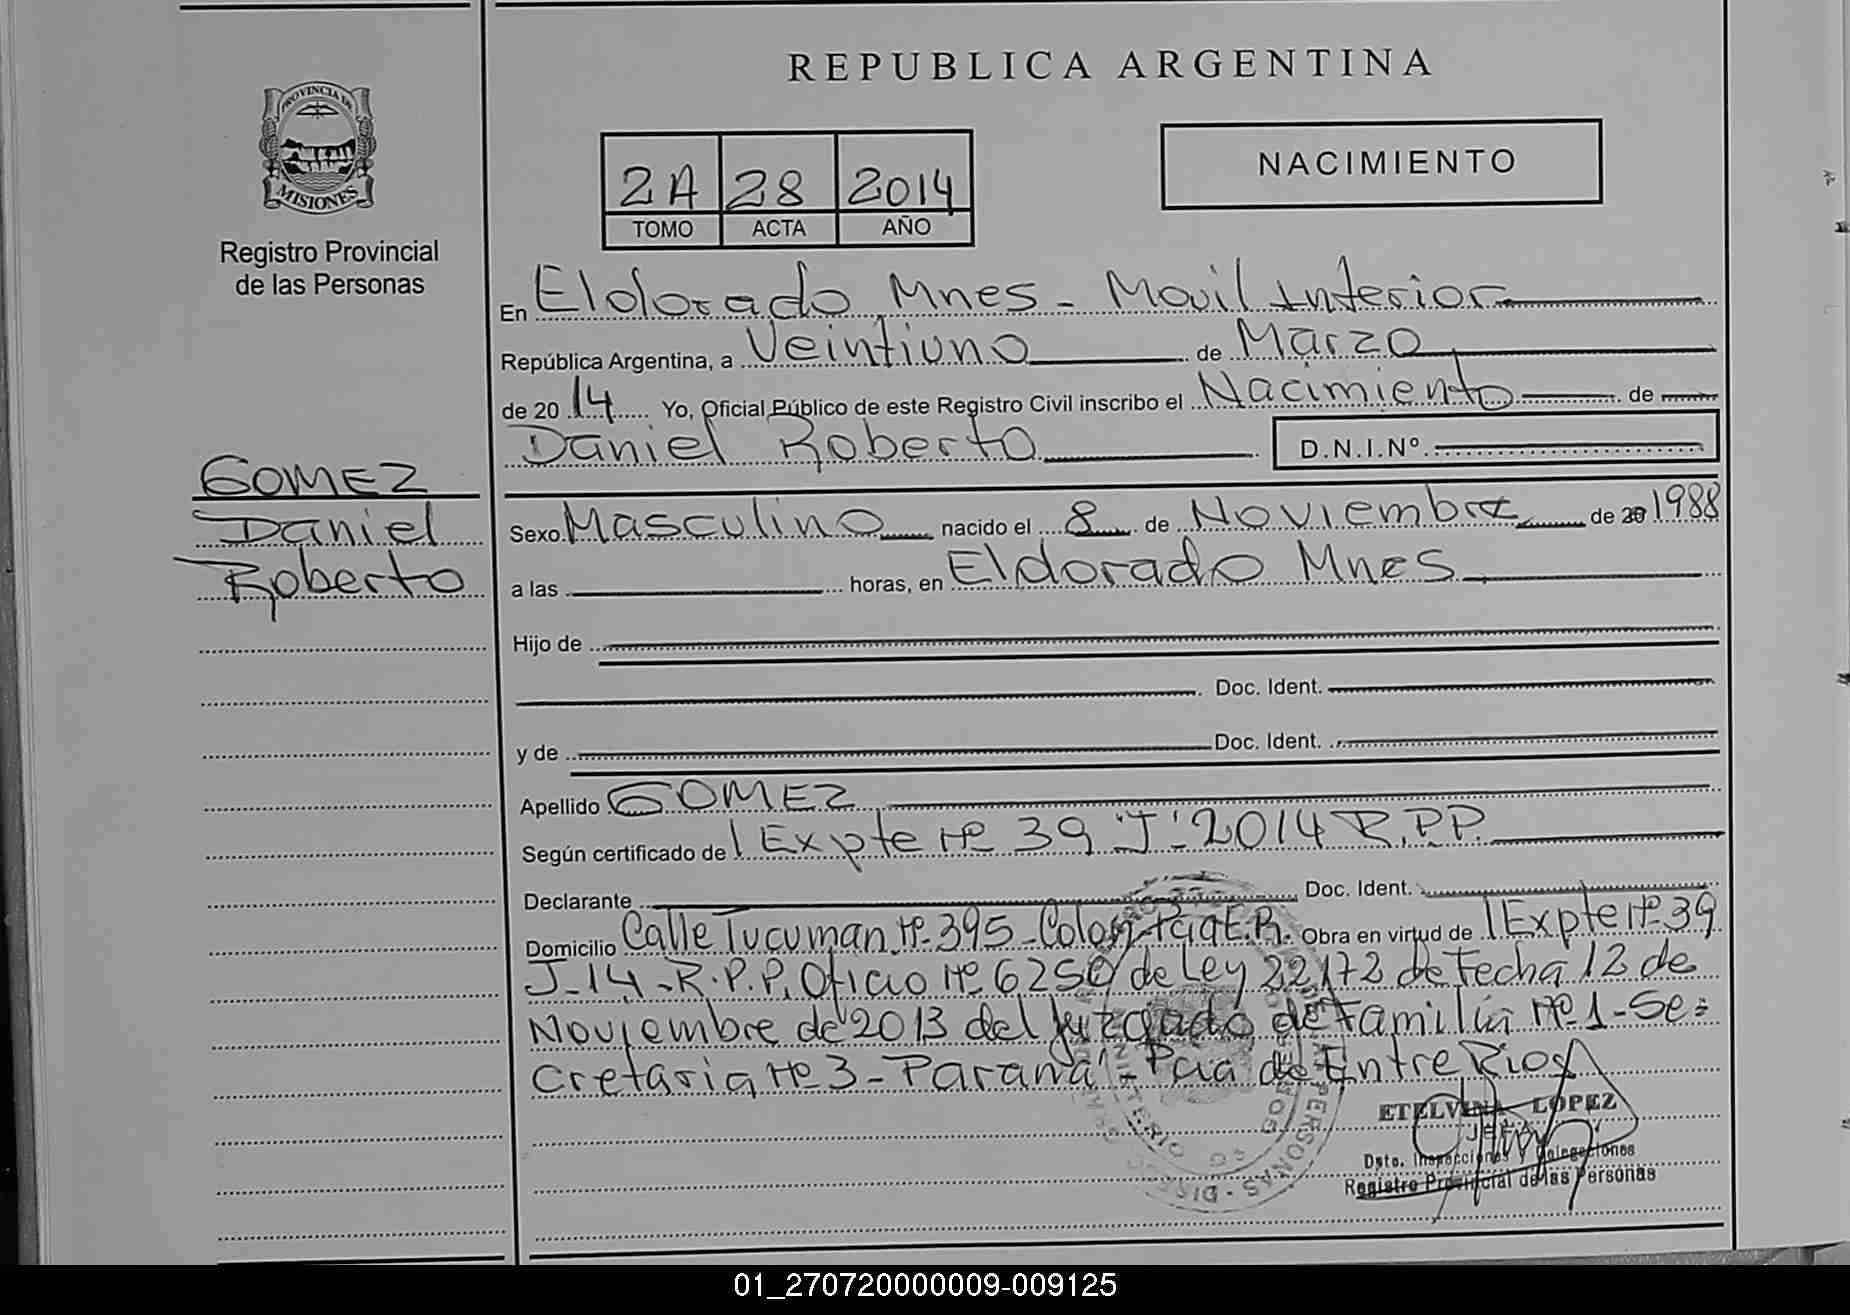 REPUBLICA ARGENTINA
PROVINCIA DE
MISIONES
Registro Provincial
de las Personas
2A 28 2014
TOMO ACTA AÑO
NACIMIENTO
En Eldorado Mnes - Movil Interior
República Argentina, a Veintiuno de Marzo
de 20 14 Yo, Oficial Público de este Registro Civil inscribo el Nacimiento de
Daniel Roberto D.N.I.Nº.
GOMEZ
Daniel
Roberto
Sexo Masculino nacido el 8 de Noviembre de 20 1988
a las horas, en Eldorado Mnes
Hijo de
Doc. Ident.
y de Doc. Ident.
Apellido GOMEZ
Según certificado de Expte Nº 39 "J" 2014 R.P.P.
Declarante Doc. Ident.
Domicilio Calle Tucuman Nº 395 - Colon Pcia E.R. Obra en virtud de Expte Nº 39
J-14-R.P.P. Oficio Nº 6250 de Ley 22172 de Fecha 12 de
Noviembre de 2013 del Juzgado de Familia Nº 1 - Se=
cretaria Nº 3 - Paraná - Pcia de Entre Rios
ETELVINA LOPEZ
JEFA
Dpto. Inspecciones y Delegaciones
Registro Provincial de las Personas
01_270720000009-009125